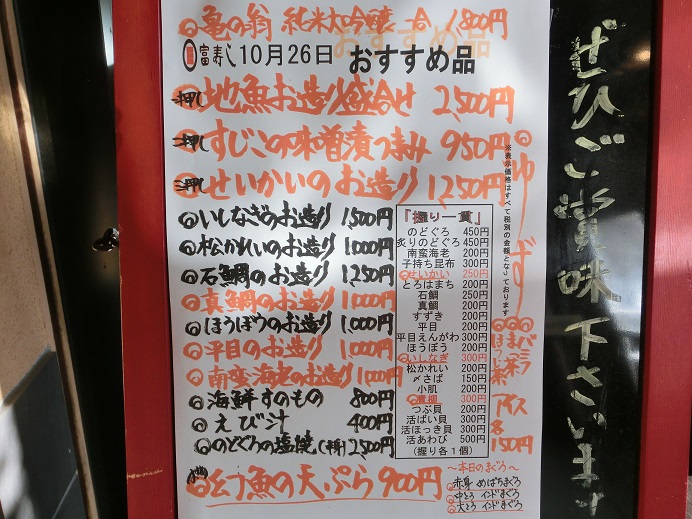 亀の翁 純米大吟醸 一合 1,800円
富寿し 10月26日 おすすめ品
押し 地魚お造り盛合せ 2,500円
押し すじこの味噌漬つまみ 950円
押し せいかいのお造り 1,250円
いしなぎのお造り 1,500円
松かれいのお造り 1,000円
石鯛のお造り 1,250円
真鯛のお造り 1,000円
ほうぼうのお造り 1,000円
平目のお造り 1,000円
南蛮海老のお造り 1,000円
海鮮すのもの 800円
えび汁 400円
のどぐろの塩焼(半身) 2,500円
幻魚の天ぷら 900円
『握り一貫』
のどぐろ 450円
炙りのどぐろ 450円
南蛮海老 200円
子持ち昆布 300円
せいかい 250円
とろはまち 200円
石鯛 250円
真鯛 200円
すずき 200円
平目 200円
平目えんがわ 300円
ほうぼう 200円
いしなぎ 300円
松かれい 200円
〆さば 150円
小肌 200円
青柳 300円
つぶ貝 200円
活ばい貝 300円
活ほっき貝 300円
活あわび 500円
(握り各1個)
※表示価格はすべて税別の金額となっております
ゆず
バニラ
まっ茶
ほうじ茶
アイス
各
150円
〜本日のまぐろ〜
赤身 めばちまぐろ
中とろ インドまぐろ
大とろ インドまぐろ
ぜひご賞味下さいませ